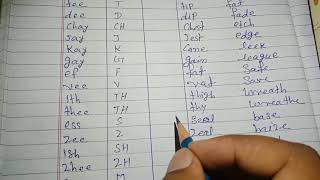 tee T tip fate
dee D dip fade
Chay CH Chest etch
Jay J Jest edge
Kay K Cane leek
gay G gain league
ef F fat Safe
vee V vat Save
ith TH thigh wreath
thee TH thy wreathe
ess S Seal base
zee Z Zeal baize
ish SH
zhee ZH
M